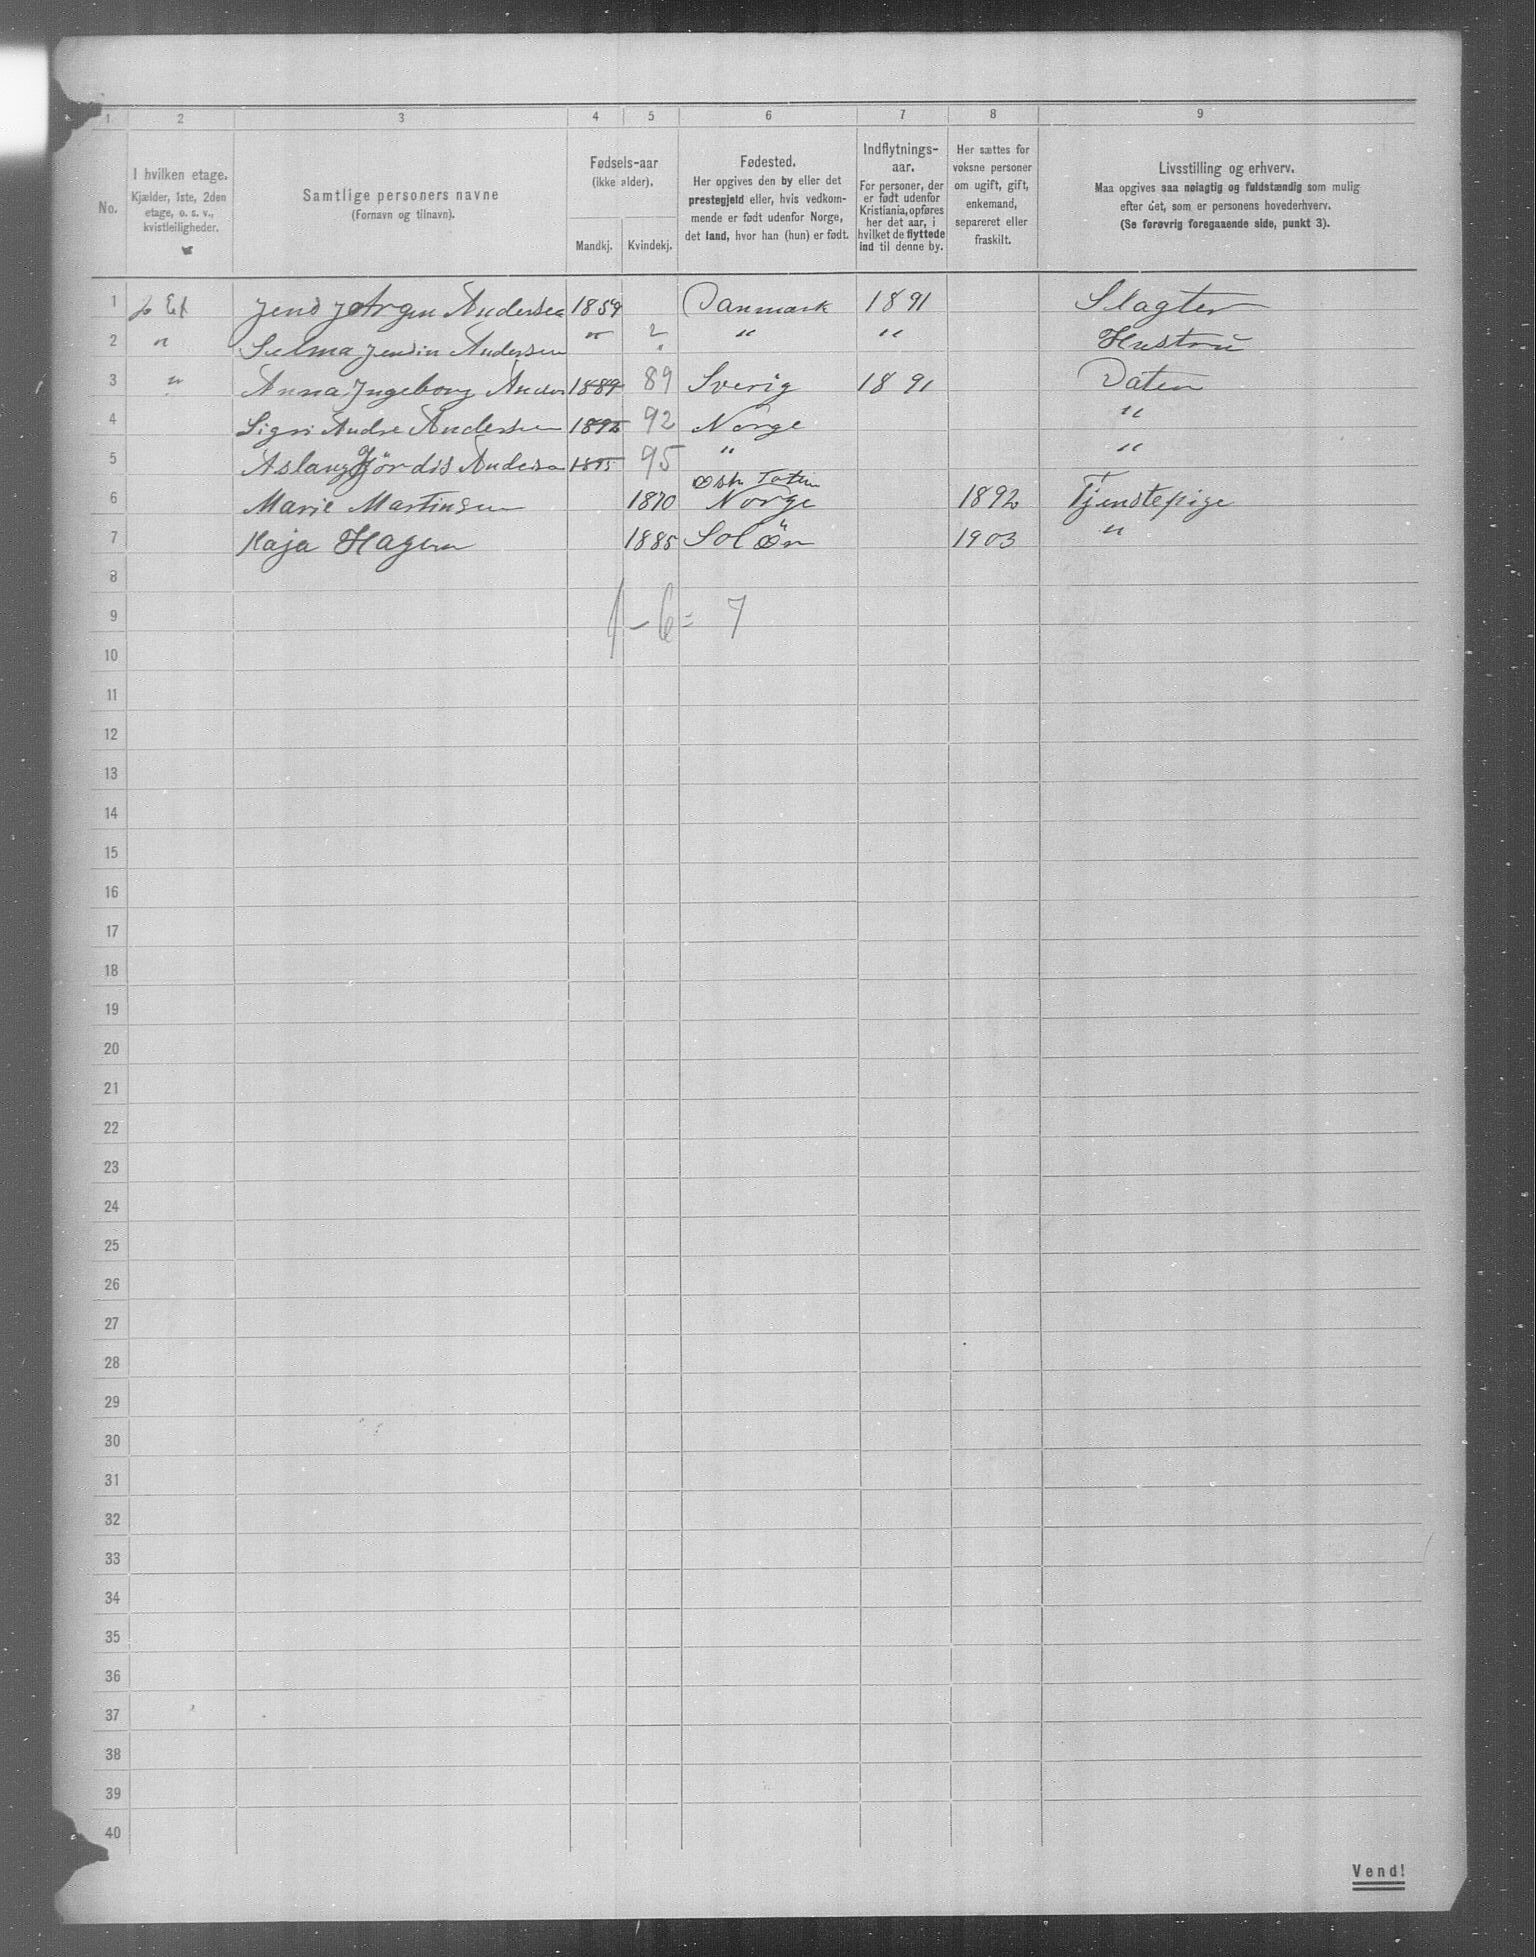 1 2 3 4 5 6 7 8 9
No.
I hvilken etage.
Kjælder, 1ste, 2den
etage, o. s. v.,
kvistleiligheder.
Samtlige personers navne
(Fornavn og tilnavn).
Fødsels-aar
(ikke alder).
Mandkj. Kvindekj.
Fødested.
Her opgives den by eller det
prestegjeld eller, hvis vedkom-
mende er født udenfor Norge,
det land, hvor han (hun) er født.
Indflytnings-
aar.
For personer, der
er født udenfor
Kristiania, opføres
her det aar, i
hvilket de flyttede
ind til denne by.
Her sættes for
voksne personer
om ugift, gift,
enkemand,
separeret eller
fraskilt.
Livsstilling og erhverv.
Maa opgives saa nøiagtig og fuldstændig som mulig
efter det, som er personens hovederhverv.
(Se forøvrig foregaaende side, punkt 3).
1 Et Jens Jørgen Andersen 1859 Danmark 1891 Slagter
2 " Selma Jensin Andersen " " " " Hustru
3 " Anna Ingeborg Ander 1889 89 Sverig 1891 Daten
4 Sigri Andre Andersen 1892 92 Norge "
5 Aslaug Hjørdis Andersen 1895 95 " "
Østr Toten
6 Marie Martinsen 1870 Norge 1892 Tjenstepige
7 Kaja Hagen 1885 Solör 1903 "
8
9 1 – 6 = 7
10
11
12
13
14
15
16
17
18
19
20
21
22
23
24
25
26
27
28
29
30
31
32
33
34
35
36
37
38
39
40
Vend!